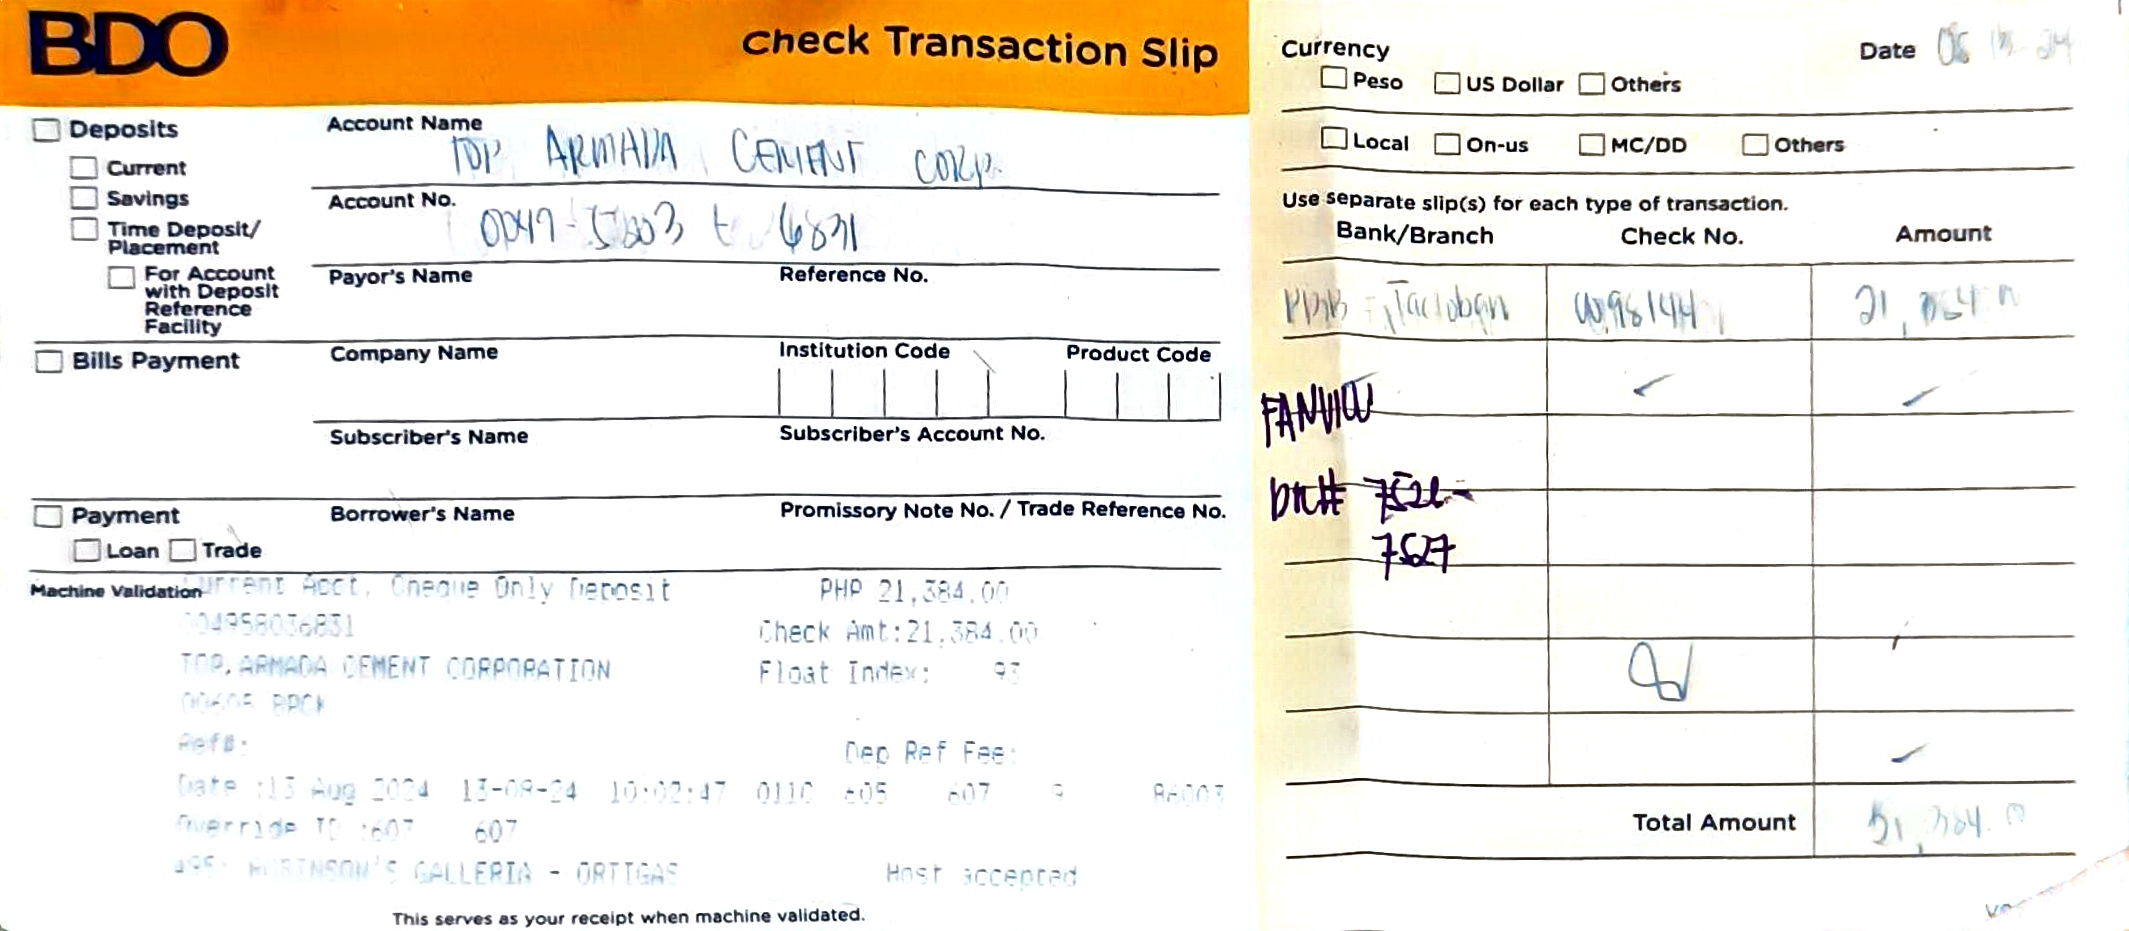 BDO
Check Transaction Slip
Deposits
Current
Savings
Time Deposit/
Placement
For Account
with Deposit
Reference
Facility
Account Name
TOP ARMADA CEMENT CORP.
Account No.
Payor's Name Reference No.
Bills Payment
Company Name Institution Code Product Code
Subscriber's Name Subscriber's Account No.
Payment
Loan Trade
Borrower's Name Promissory Note No. / Trade Reference No.
Machine Validation
Current Acct. Cheque Only Deposit PHP 21,384.00
004958036831 Check Amt:21,384.00
TOP.ARMADA CEMENT CORPORATION Float Index: 93
Ref#: Dep Ref Fee:
Date :13 Aug 2024 13-08-24 10:02:47 0110 605 607 9
Override ID :607 607
ROBINSON'S GALLERIA - ORTIGAS Host accepted
This serves as your receipt when machine validated.
Currency Date
Peso US Dollar Others
Local On-us MC/DD Others
Use separate slip(s) for each type of transaction.
Bank/Branch Check No. Amount
Tacloban
DR#
7527
Total Amount